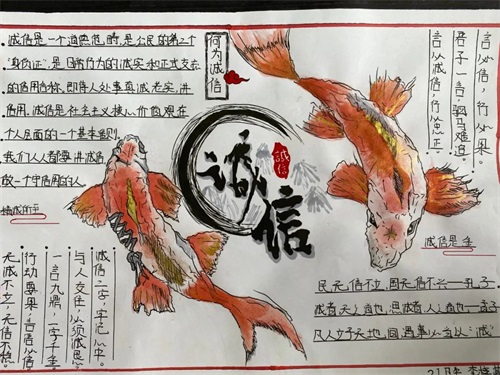 诚信是一个道德范畴,是公民的第二个
"身份证",是日常行为的诚实和正式交流
的信用合称,即待人处事真诚老实、讲
信用,诚信是社会主义核心价值观在
个人层面的一个基本准则
我们人人都要讲诚信
做一个守信用的人
何为诚信
言必信,行必果。
君子一言,驷马难追。
言必诚信,行必忠正。
诚信
誠信
诚信二字,牢记心中。
与人交往,必须诚恳。
一言九鼎,一字千金
行动要果,言语必信
无诚不立,无信不稳。
诚信是
民无信不立,国无信不兴——孔子
诚者天之道也,思诚者人之道也——孟子
凡人立于天地,同遇事必立以一诚